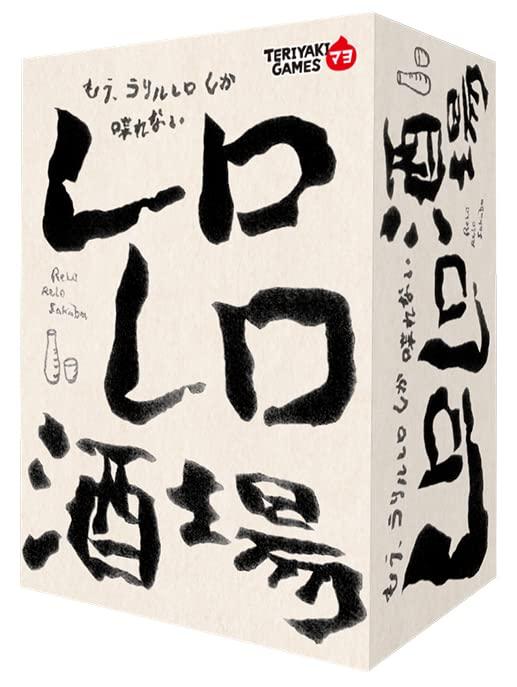 TERIYAKI
GAMES
マヨ
もう、ラリルレロしか
喋れない
レロ
レロ
ReLo
ReLo
Sakaba
酒場
レロレロ酒場
ReLo
ReLo
Sakaba
もう、ラリルレロしか喋れない